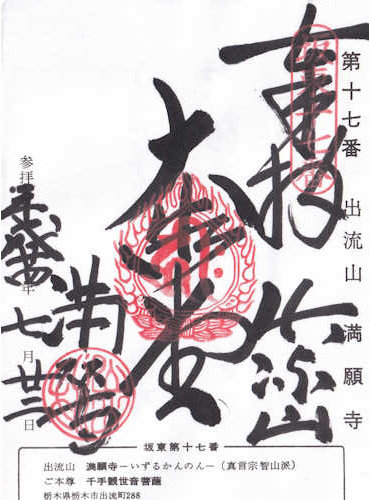 第十七番 出流山 満願寺
奉拝 出流山
坂東十七番
大御堂
満願寺
参拝 平成 年 七月廿三日
坂東第十七番
出流山 満願寺－いずるかんのん－（真言宗智山派）
ご本尊 千手観世音菩薩
栃木県栃木市出流町288